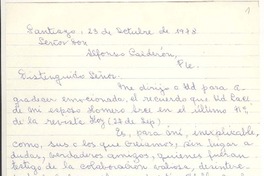 1
Santiago, 23 de Octubre de 1978
Señor Don
Alfonso Calderón,
Pte.
Distinguido Señor:
Me dirijo a Ud para a-
gradecer emocionada, el recuerdo que Ud hace
de mi esposo Homero Arce en el último Nº
de la revista Hoy (22 de Sep).
Es, para mí, inexplicable,
como, sus o los que creíamos, sin lugar a
dudas, verdaderos amigos, quienes fueran
testigo de la colaboración valiosa, desintere-